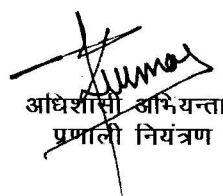 Kumar
अधिशासी अभियन्ता
प्रणाली नियंत्रण